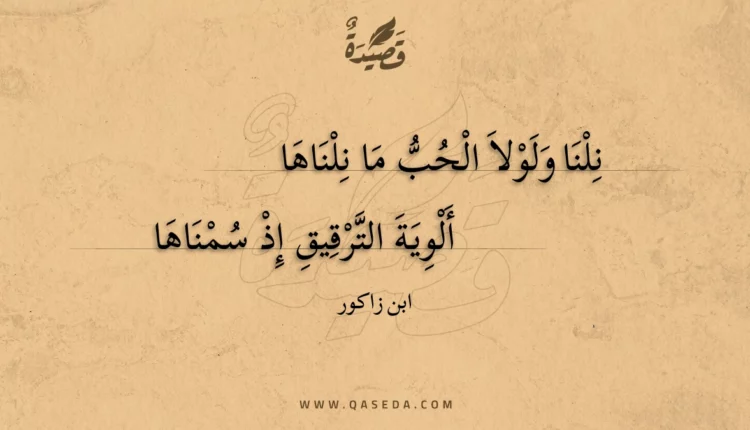 قَصِيْدَةٌ
نِلْنَا وَلَوْلاَ الْحُبُّ مَا نِلْنَاهَا
أَلْوِيَةَ التَّرْقِيقِ إِذْ سُمْنَاهَا
ابن زاكور
WWW.QASEDA.COM